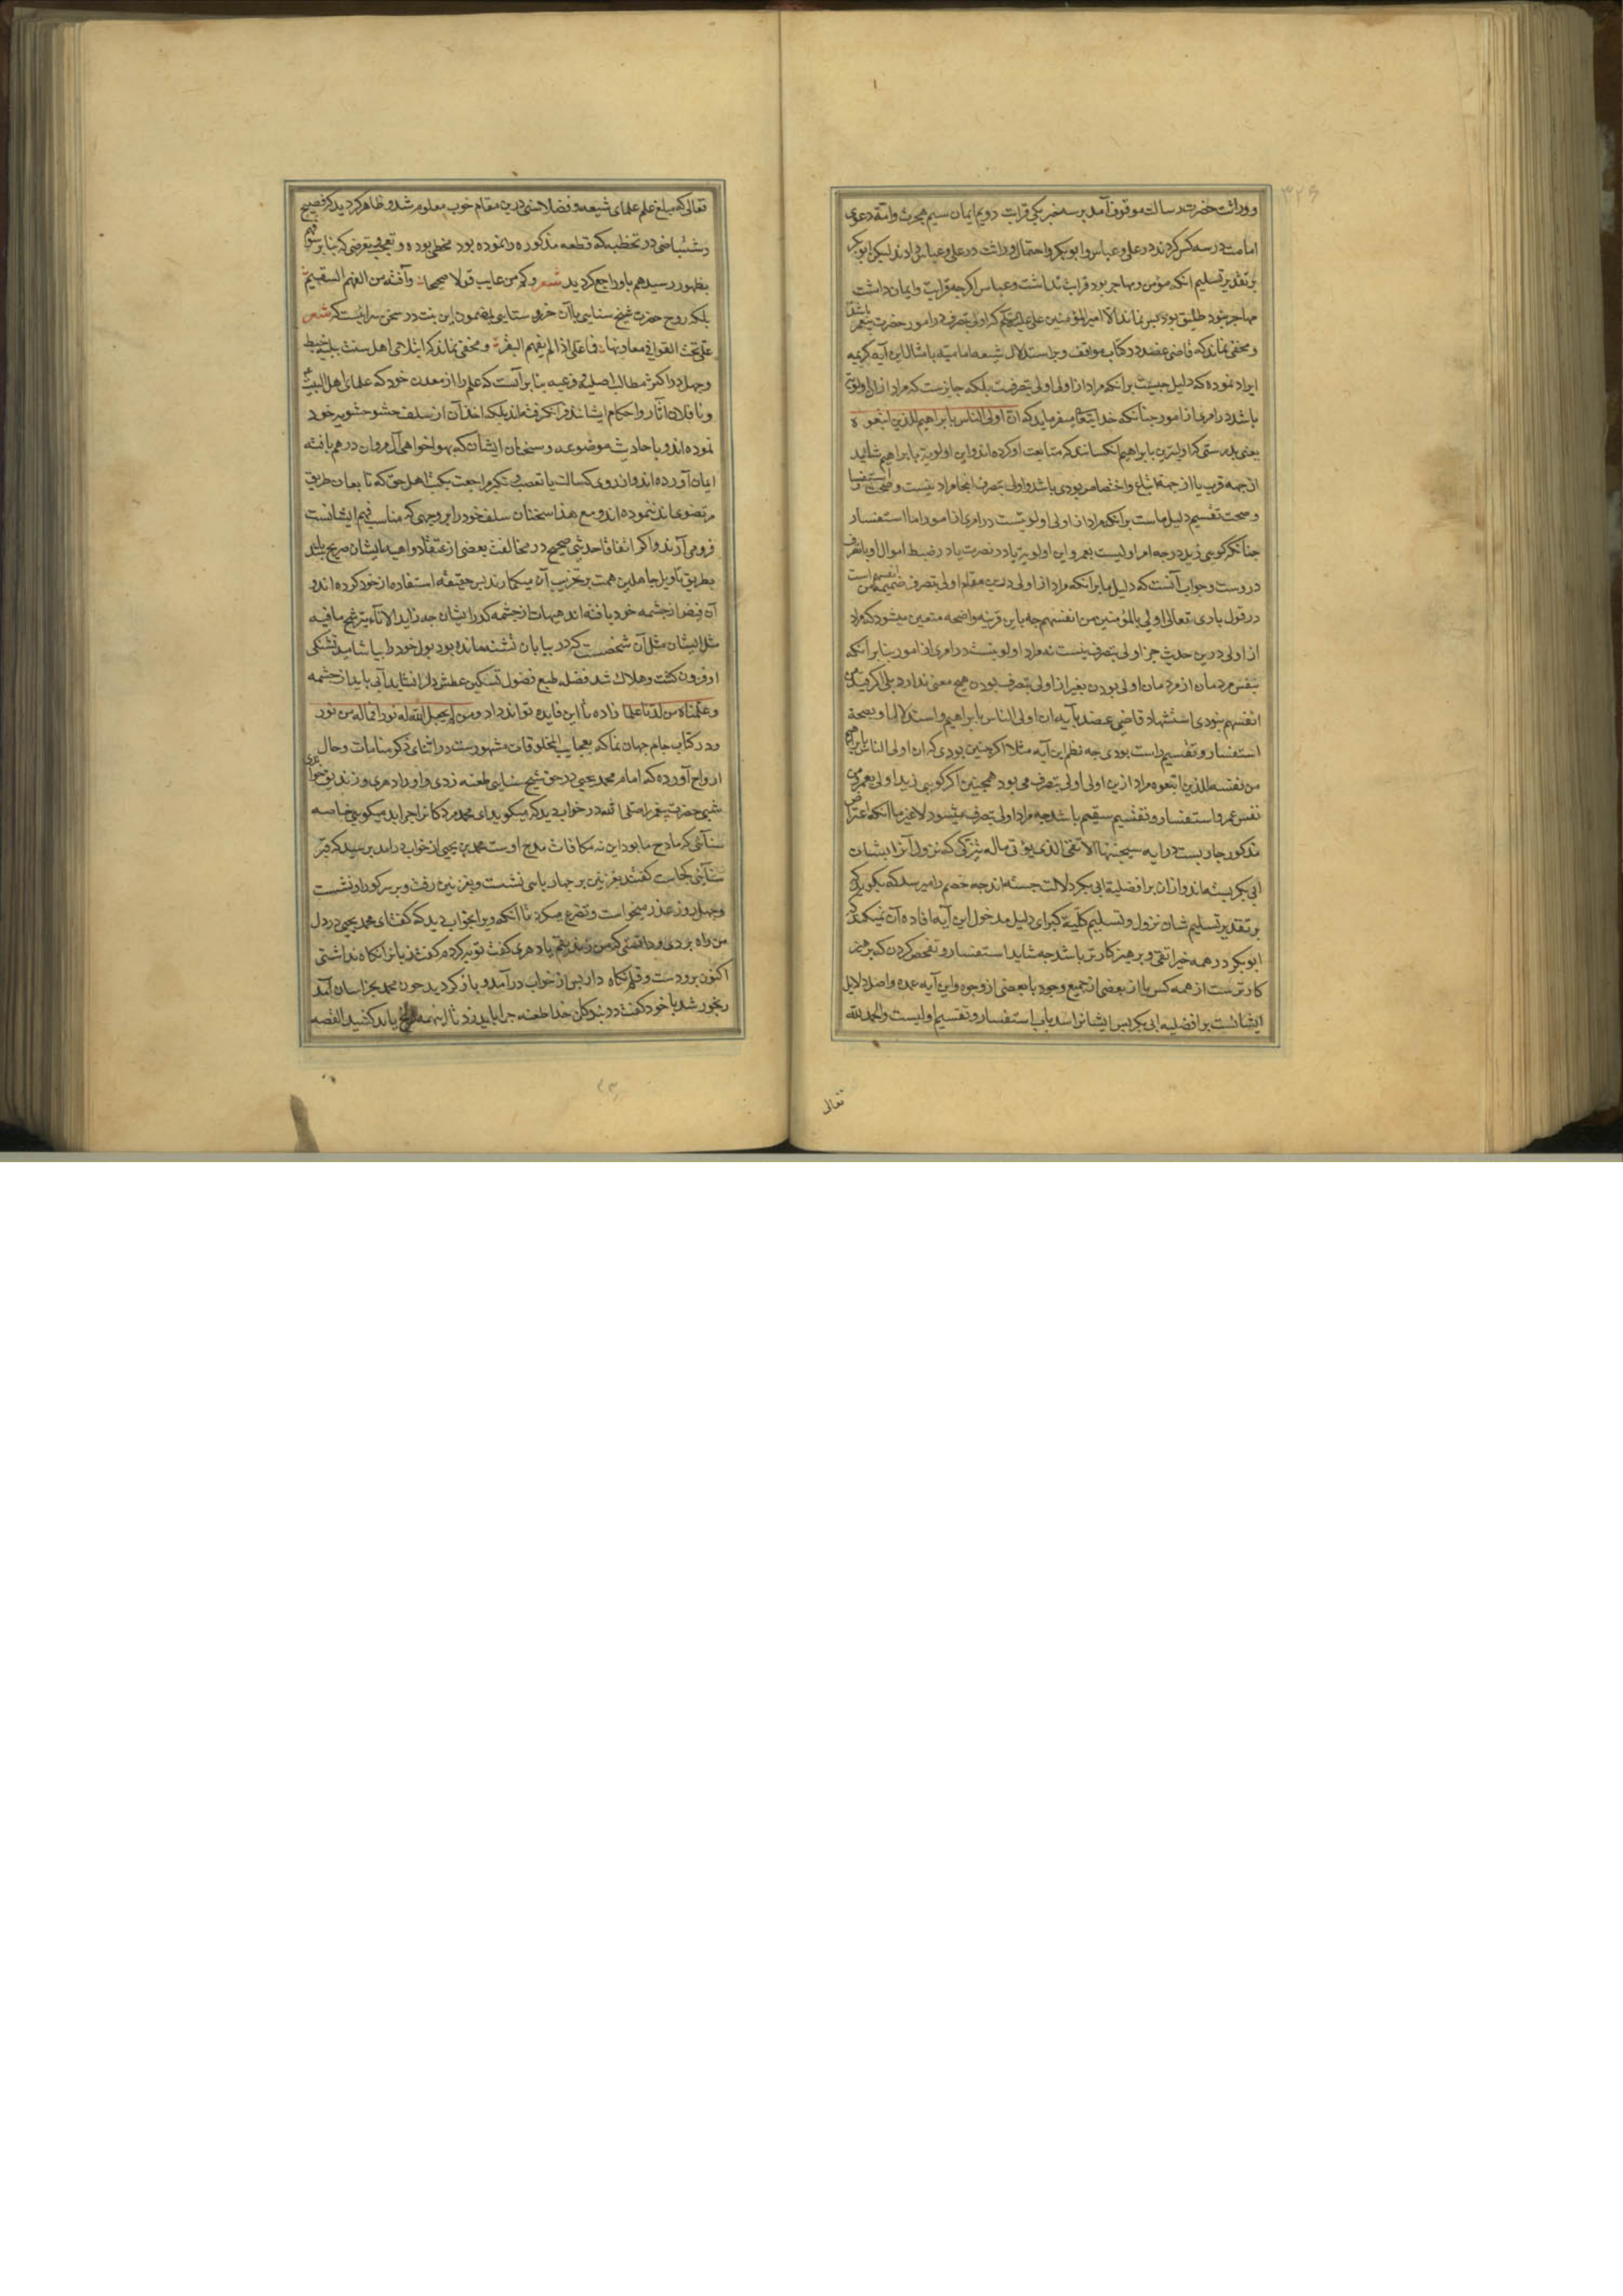 ۳۲۶
و وراثت حضرت رسالت موقوف آمد بر سه خبر یکی قرابت دویم ایمان سیم هجرت و امة دعوی
امامت در سه کس کردند در علی و عباس و ابوبکر و احتمال وراثت در علی و عباس دادند لیکن ابوبکر
بر تقدیر تسلیم انکه مؤمن و مهاجر بود قرابت نداشت و عباس اکرچه قرابت و ایمان داشت
مهاجر نبود طلیق بود پس نماند الا امیر المؤمنین علی علیه السلام که اولی بتصرف در امور حضرت پیغمبر باشد
و مخفی نماند که قاضی عضد در کتاب مواقف وجه استدلال شیعه امامیه بامثال این آیه کریمه
ایراد نموده که دلیل چیست برانکه مراد از اولی اولی بتصرفست بلکه جایزست که مراد ازان اولویت
باشد در امری از امور چنانکه خدایتعالی میفرماید که ان اولی الناس بابراهیم للذین اتبعوه
یعنی بدرستی که اولیترین بابراهیم انکسانند که متابعت او کرده اند و این اولویة بابراهیم شاید
از جهة قرب یا از جهة اتباع و اختصاص بودی باشد و اولی بتصرف اینجا مراد نیست و صحت استفسار
و صحت تقسیم دلیل ماست برانکه مراد از اولی اولویتست در امری از امور اما استفسار
چنانکه کویی زید در چه امر اولیست بعمرو این اولویة یا در نصرت یا در ضبط اموال او یا تصرف
در وست و جواب آنست که دلیل ما برانکه مراد از اولی درین مقام اولی بتصرفست ضمیمه من انفسهم است
در قول باری تعالی اولی بالمؤمنین من انفسهم چه باین قرینه واضحه متعین میشود که مراد
از اولی درین حدیث جز اولی بتصرف نیست نه مراد اولویتست در امری از امور بنابر انکه
بنفس مردمان از مردمان اولی بودن بغیر از اولی بتصرف بودن هیچ معنی ندارد بلی اکر قید من
انفسهم نبودی استشهاد قاضی عضد بآیه ان اولی الناس بابراهیم و استدلال او بصحة
استفسار و تقسیم راست بودی چه نظم این آیه مثلا اکر چنین بودی که ان اولی الناس بابراهیم
من نفسه للذین اتبعوه مراد ازین اولی اولی بتصرف می بود همچنین اکر کویی زید اولی بعمرو من
نفس عمرو استفسار و تقسیم سقیم باشد چه مراد اولی بتصرف میشود لا غیر با انکه اعتراض
مذکور جاریست در آیه سیجنبها الاتقی الذی یؤتی ماله یتزکی که نزول آنرا بشان
ابی بکر بسته اند و ازان بر افضلیة ابی بکر دلالت جسته اند چه خصم را میرسد که بکوید که
بر تقدیر تسلیم شان نزول و تسلیم کلیة کبرای دلیل مدخول این آیه افاده آن نمیکند که
ابو بکر در همه خیر اتقی و پرهیزکارتر باشد چه شاید استفسار و تفحص کردن که پرهیز
کارترست از همه کس یا از بعضی از جمیع وجوه یا بعضی از وجوه و این آیه عمده و اصل دلایل
ایشانست بر افضلیه ابی بکر پس ایشانرا سد باب استفسار و تقسیم اولیست و الحمد لله
تعالی
تعالی که مبلغ علم علمای شیعه و فضلا سنی درین مقام خوب معلوم شد و ظاهر کردید که
در تخطبه که قطعه مذکوره را نموده بود مخطی بوده و تعرضی که بنابر سوء فهم
بظهور رسید هم باو راجع کردید شعر وکم من عایب قولا صحیحا وآفته من الفهم السقیم
بلکه روح حضرت شیخ سنایی باآن خرو ستایی بمضمون این بیت در سخن سرائیست که شعر
علی نحت القوافی من معادنها فما علی اذا لم یفهم البقر و مخفی نماند که ابتلای اهل سنت ببلیه خبط
و جهل در اکثر مطالب اصلی و فرعیه بنا بر آنست که علم را از معدن خود که علمای اهل البیت
و ناقلان آثار و احکام ایشانند فرا نکرفته اند بلکه اخذ آن از سلف حشو حشویه خود
نموده اند و باحادیث موضوعه و سخنان ایشان که بهواخواهی آل مروان در هم بافته
ایمان آورده اند و از روی کسالت یا تعصب و تکبر مراجعت بکتب اهل حق که تابعان طریق
مرتضوی اند ننموده اند و مع هذا سخنان سلف خود را بر وجهی که مناسب فهم ایشانست
فرو می آرند و اکر اتفاقا حدیثی صحیح در مخالفت بعضی از عقاید واهیه ایشان صریح باشد
بطریق تأویل جاهلین همت بر تخریب آن میکمارند پس حقیقه استفاده از خود کرده اند و
آن فیض از چشمه خود یافته اند هیهات از چشمه کدر ایشان چه زاید الاناء یترشح ما فیه
مثل ایشان مثل آن شخصست که در بیابان تشنه مانده بود بول خود را بیاشامید تشنکی
او فزون کشت و هلاک شد فضله طبع فضول تسکین عطش دل را نشاید آبی باید از چشمه
و علمناه من لدنا علما زاده تا این فایده تواند داد و من لم یجعل الله له نورا فما له من نور
و در کتاب جام جهان نما که بعجایب المخلوقات مشهورست در اثنای ذکر منامات و حال
ارواح آورده که امام محمد یحیی در حق شیخ سنایی طعنه زدی و او را دهری و زندیق خواندی
شبی حضرت پیغمبر را صلی الله در خواب دید که میکوید ای محمد مردکانرا چرا بد میکویی خاصه
سنائی که مادح ما بود این نه مکافات مدح اوست محمد بن یحیی از خواب درامد پرسید که قبر
سنائی کجاست کفتند بغزنین بر چهارپایی نشست و بغزنین رفت و بر سر کور او نشست
و چهل روز عذر میخواست و تضرع میکرد تا آنکه ویرا بخواب دید که کفت ای محمد یحیی در دل
من راه بردی و دانستی که من زندیقم یا دهری کفت توبه کردم کفت زبانرا نکاه نداشتی
اکنون برو دست و قلم نکاه دار پس از خواب درآمد و باز کردید چون محمد بخراسان آمد
رنجور شد با خود کفت در بندکان خدا طعنه چرا باید زد تا اینهمه رنج باید کشید القصه